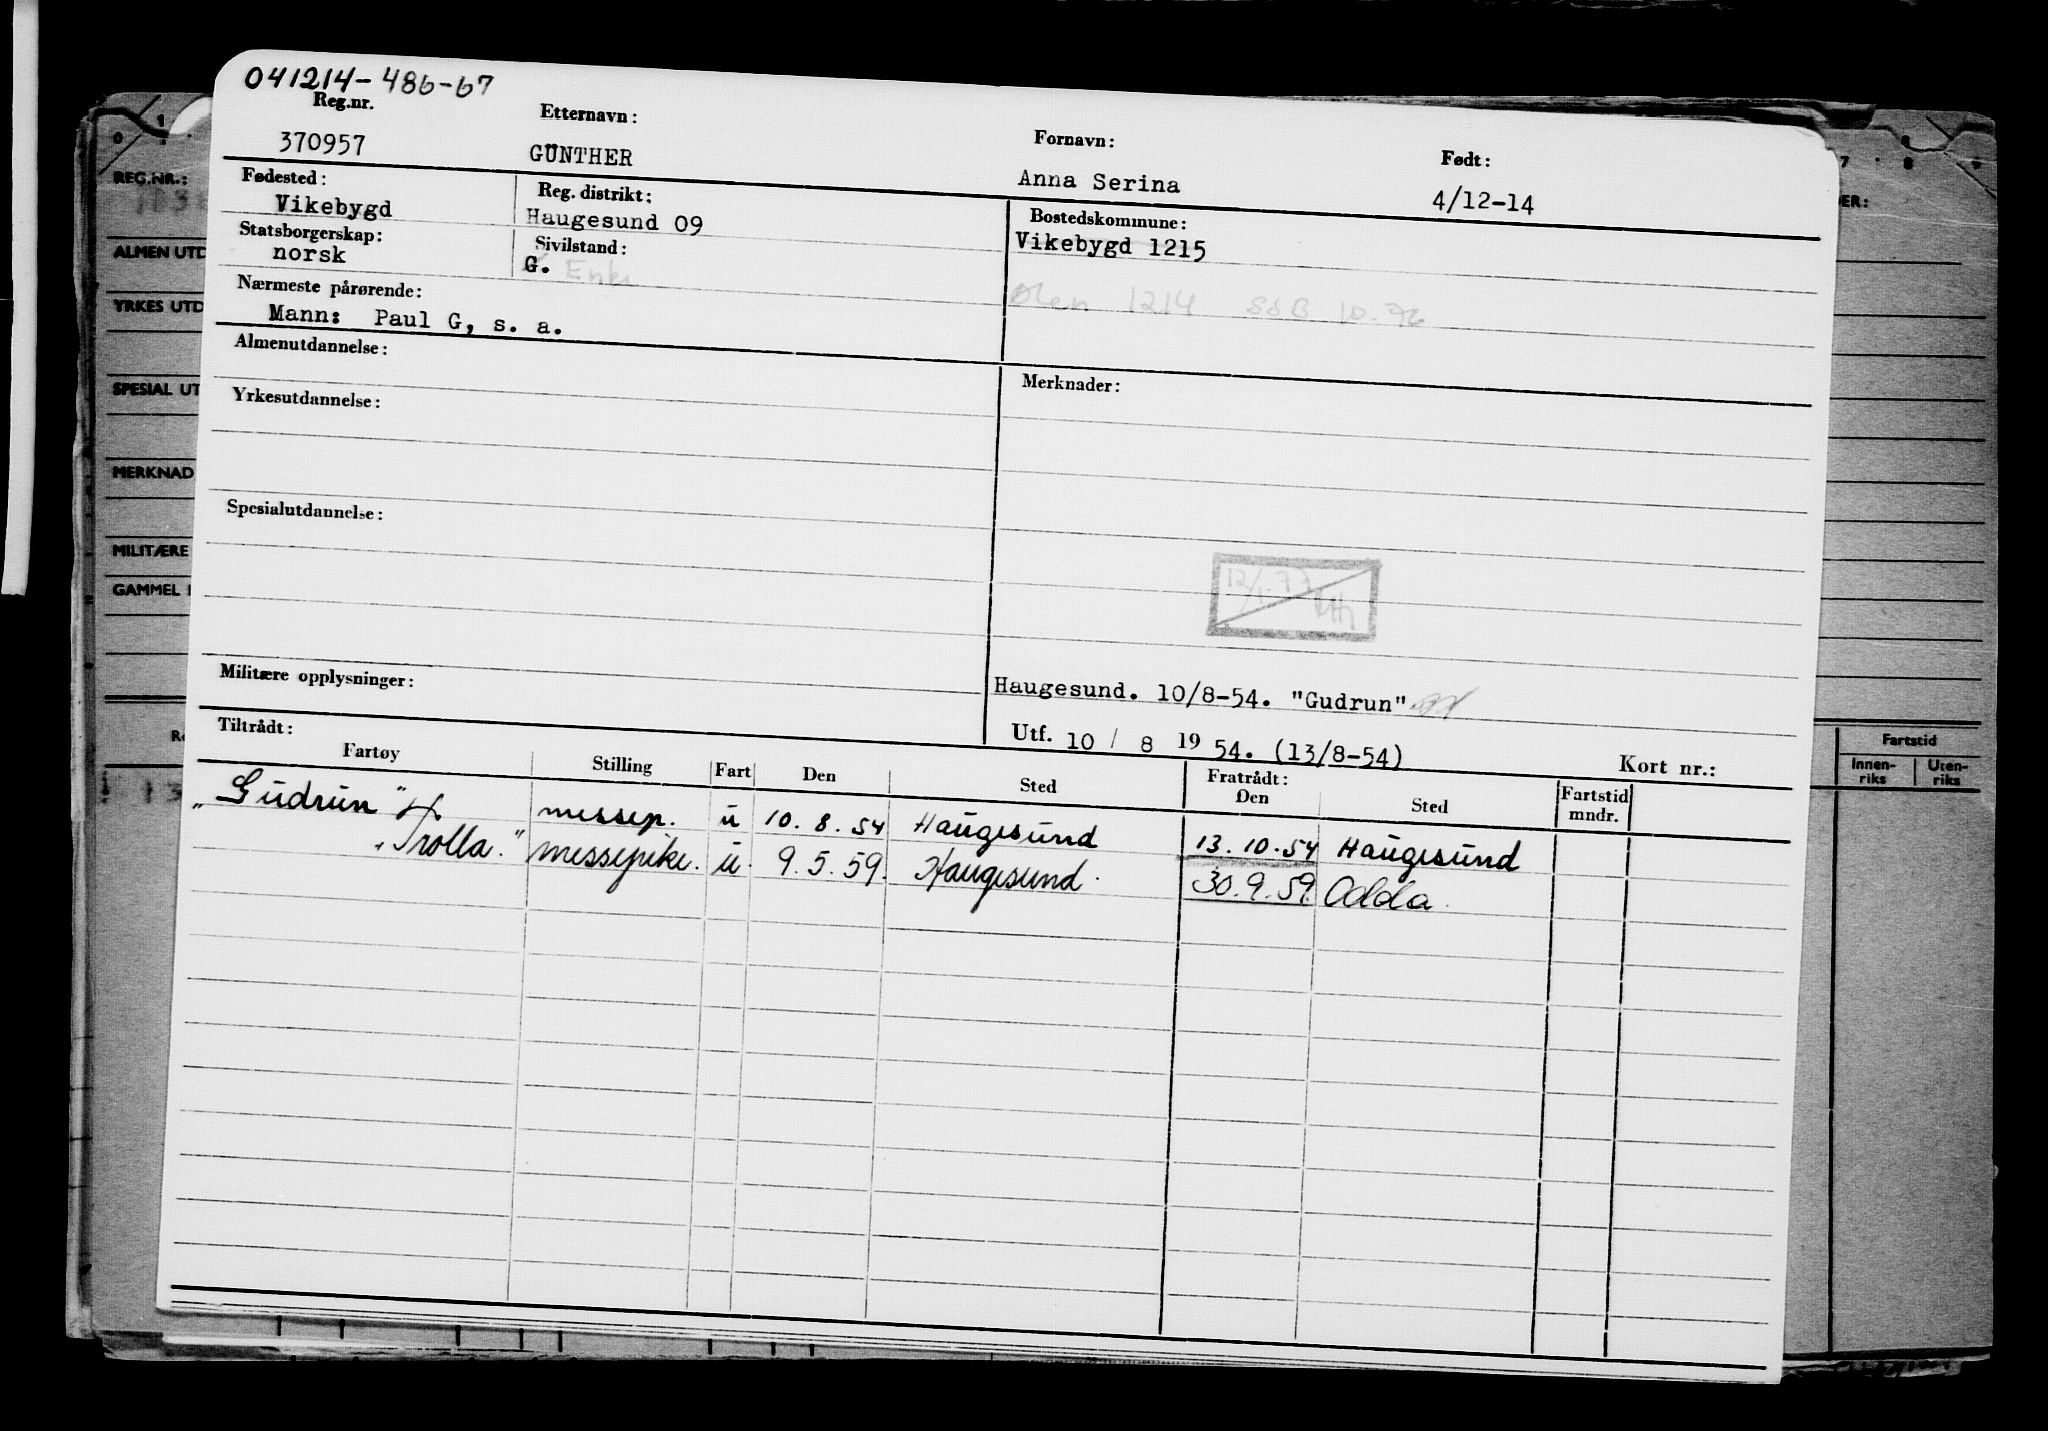 041214-486-67
Reg.nr. Etternavn: Fornavn: Født:
370957 GÜNTHER Anna Serina 4/12-14
Fødested: Reg. distrikt: Bostedskommune:
Vikebygd Haugesund 09 Vikebygd 1215
Statsborgerskap: Sivilstand:
norsk G. Enke
Ølen 1214 SSB 10.76
Nærmeste pårørende:
Mann: Paul G, s. a.
Almenutdannelse: Merknader:
Yrkesutdannelse:
Spesialutdannelse:
Militære opplysninger:
Haugesund. 10/8-54. "Gudrun"
Utf. 10 / 8 19 54. (13/8-54) Kort nr.:
Tiltrådt: Fratrådt:
Fartøy Stilling Fart Den Sted Den Sted Fartstid mndr.
"Gudrun" messep. u 10.8.54 Haugesund 13.10.54 Haugesund
"Trolla." messepike. u. 9.5.59. Haugesund. 30.9.59. Odda.
REG.NR.:
ALMEN UTD
YRKES UTD
SPESIAL UT
MERKNAD
MILITÆRE
GAMMEL
ER:
Fartstid
Innen-riks Uten-riks